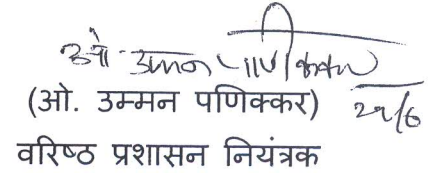 ओ. उम्मन पणिक्कर
(ओ. उम्मन पणिक्कर) 29/6
वरिष्ठ प्रशासन नियंत्रक